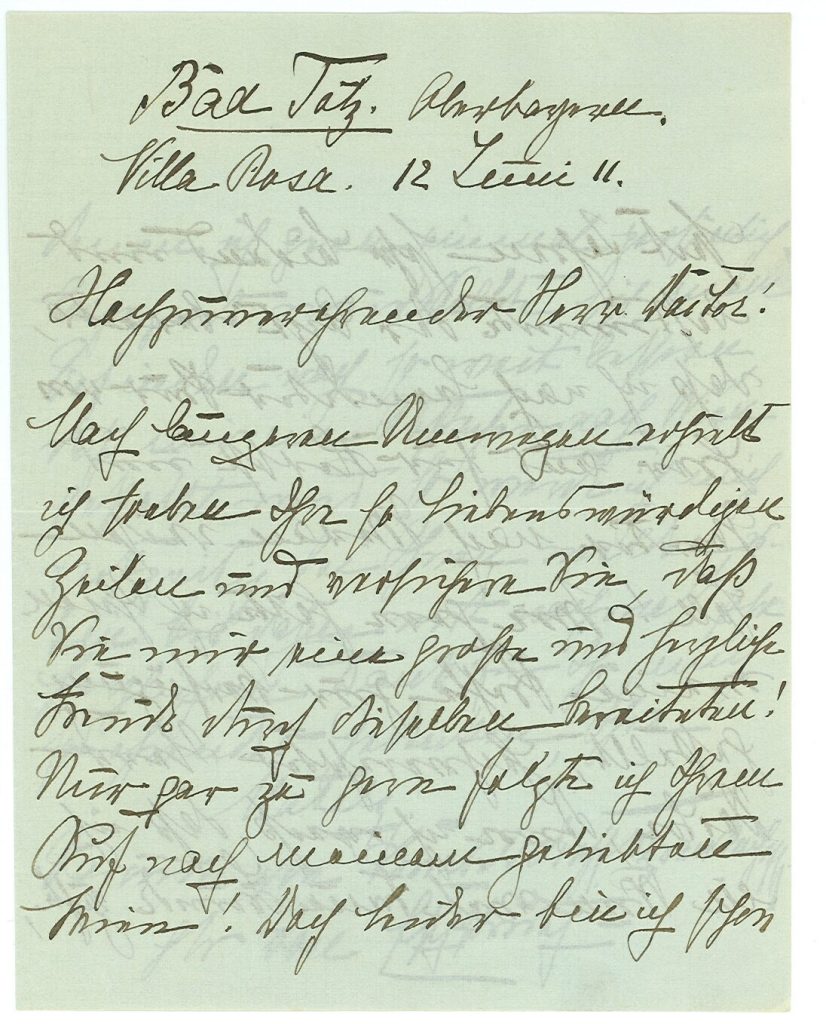 Bad Tölz. Oberbayern.
Villa Rosa. 12 Juni 11.
Hochzuverehrender Herr Doctor!
Nach längeren Umwegen erhielt
ich soeben Ihre so liebenswürdigen
Zeilen und versichere Sie, daß
Sie mir eine große und herzliche
Freude durch dieselben bereiteten!
Nur gar zu gern folgte ich Ihrem
Ruf nach meinem geliebten
Wien! Doch leider bin ich schon